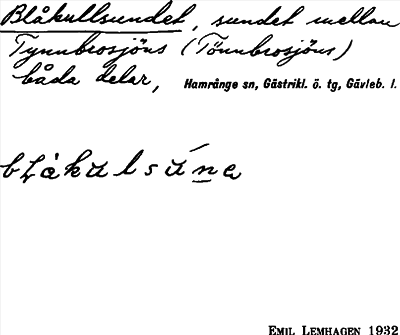 Blåkullsundet, sundet mellan
Tynnbrosjöns (Tönnbrosjöns)
båda delar, Hamrånge sn, Gästrikl. ö. tg, Gävleb. l.
EMIL LEMHAGEN 1932